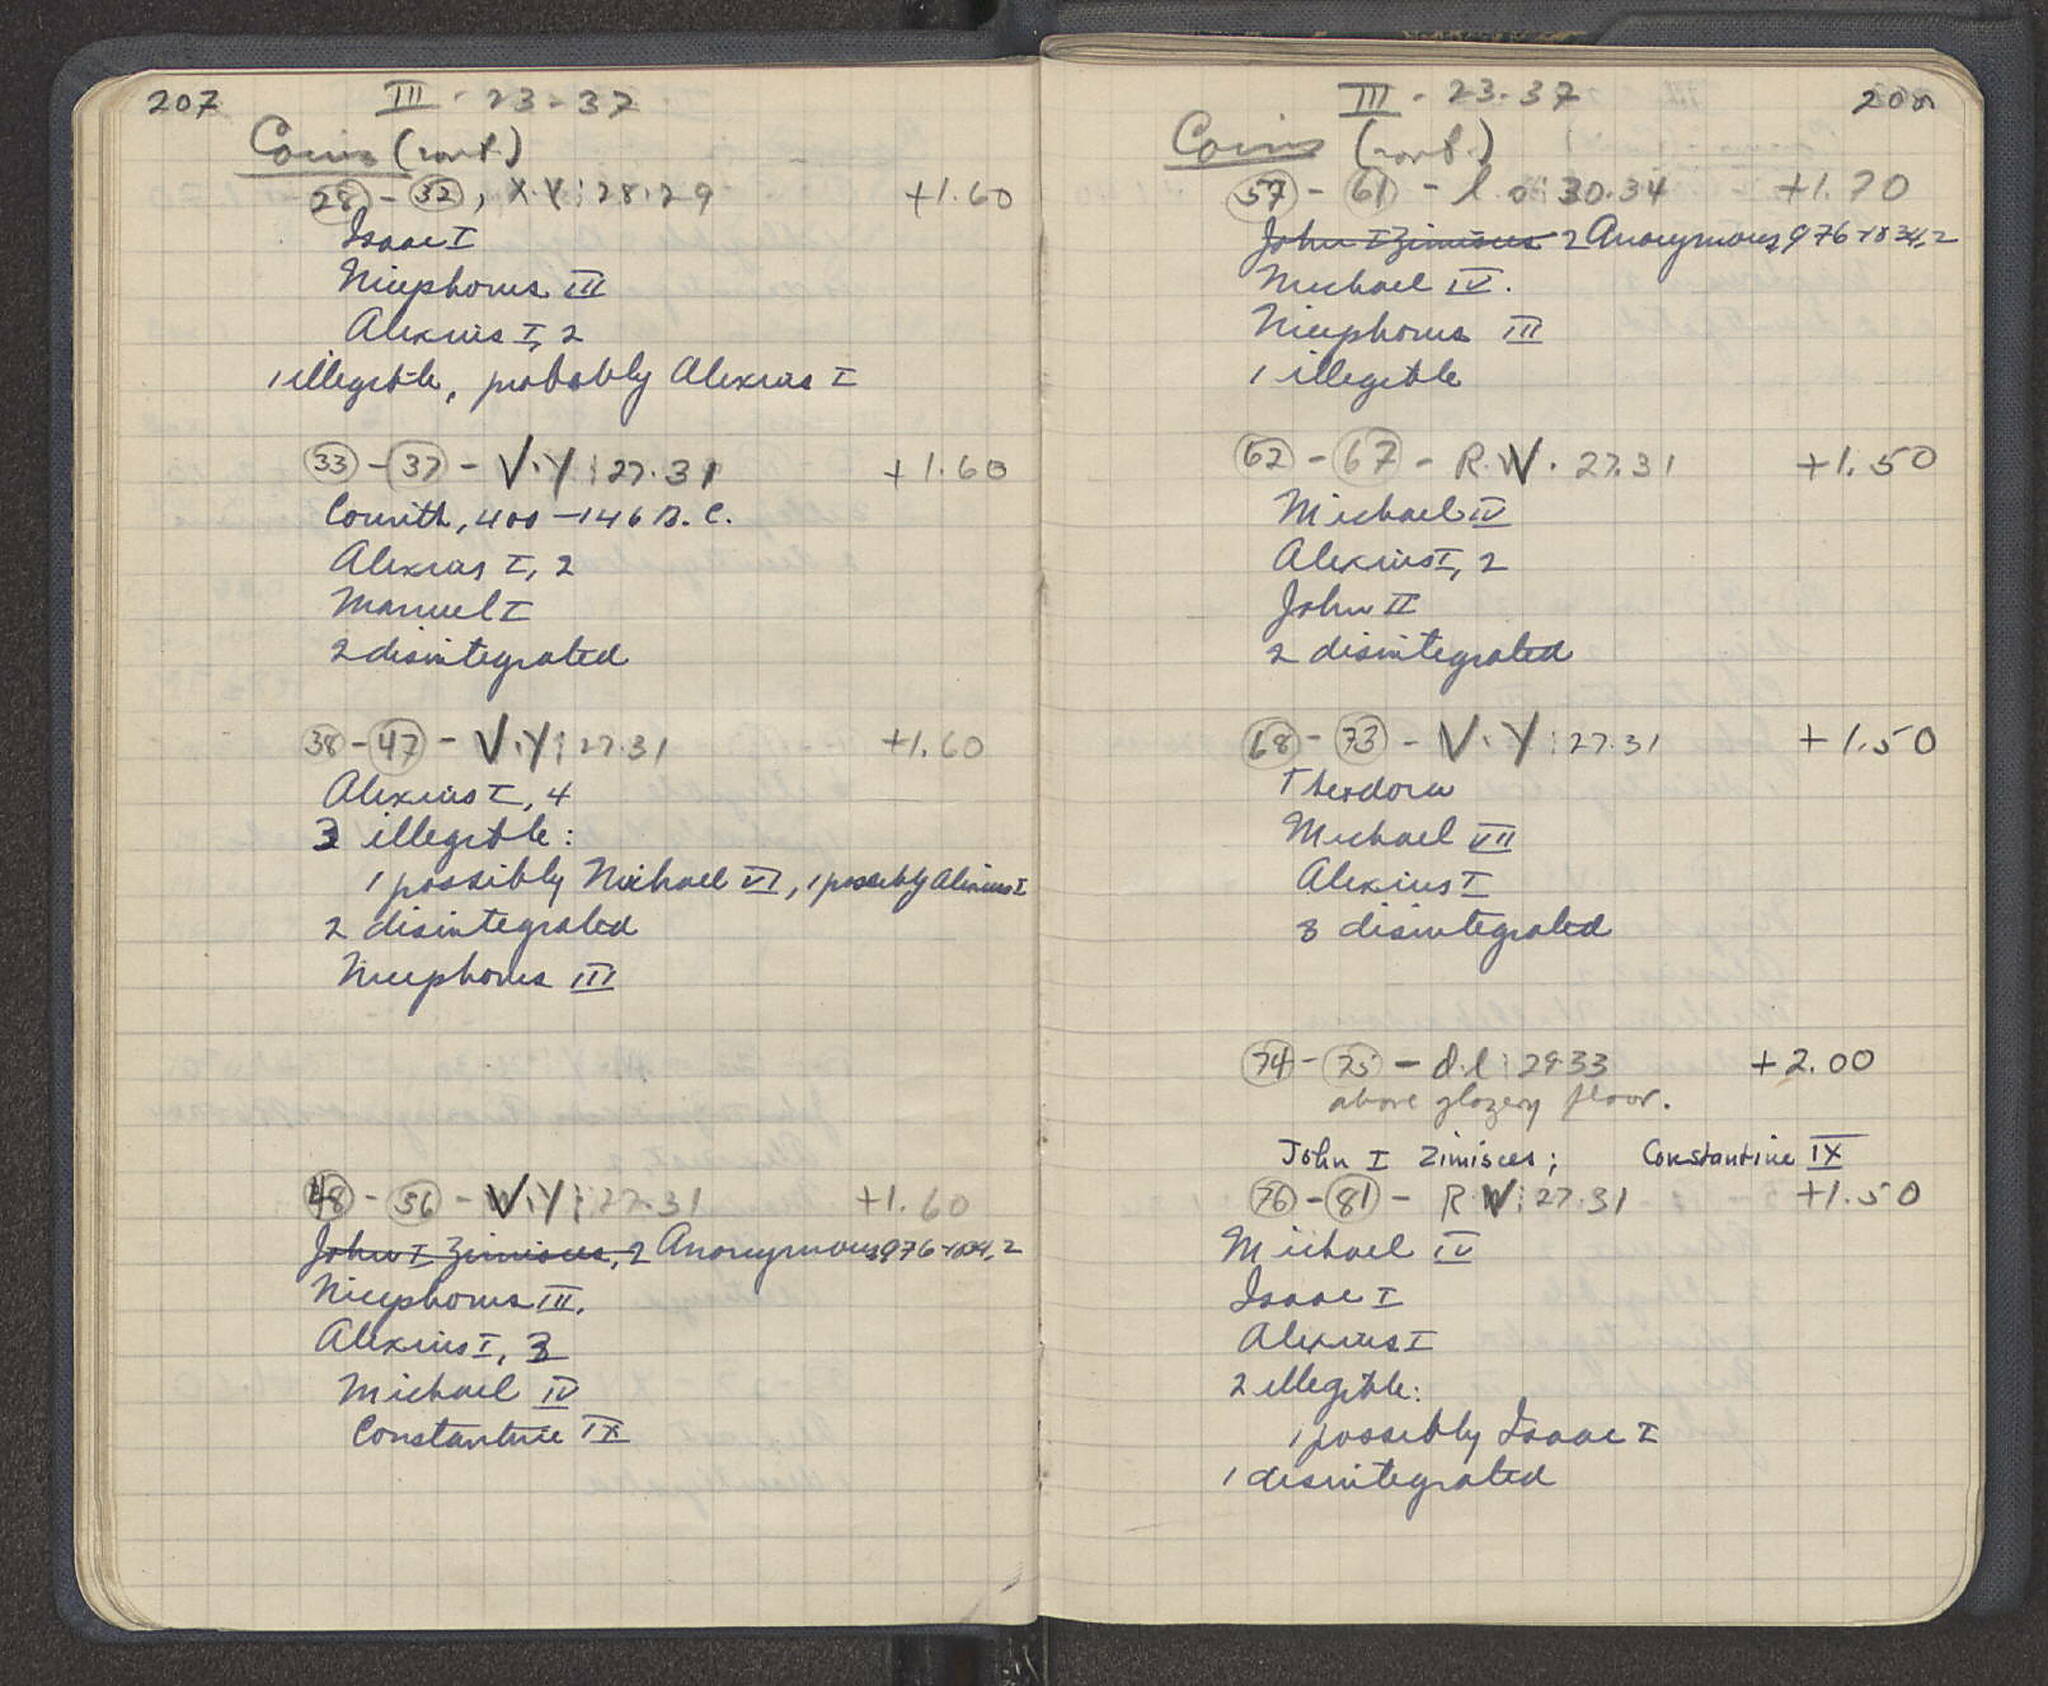 207
III - 23-37
Coins (cont.)
28 - 32, X.Y: 28.29 +1.60
Isaac I
Nicephorus III
Alexius I, 2
1 illegible, probably Alexius I
33 - 37 - V.Y: 27.31 +1.60
Corinth, 400-146 B.C.
Alexius I, 2
Manuel I
2 disintegrated
38 - 47 - V.Y: 27.31 +1.60
Alexius I, 4
3 illegible:
1 possibly Michael VI, 1 possibly Alexius I
2 disintegrated
Nicephorus III
48 - 56 - V.Y: 27.31 +1.60
John I Zimisces, 2 Anonymous 976-1034, 2
Nicephorus III.
Alexius I, 3
Michael IV
Constantine IX
III - 23-37
Coins (cont.)
57 - 61 - l. o: 30.34 +1.70
John I Zimisces 2 Anonymous 976-1034, 2
Michael IV.
Nicephorus III
1 illegible
62 - 67 - R.W. 27.31 +1.50
Michael IV
Alexius I, 2
John II
2 disintegrated
68 - 73 - V.Y: 27.31 +1.50
Theodora
Michael VII
Alexius I
3 disintegrated
74 - 75 - d.l: 29.33 +2.00
above glazery floor.
John I Zimisces; Constantine IX
76 - 81 - R W: 27.31 +1.50
Michael IV
Isaac I
Alexius I
2 illegible:
1 possibly Isaac I
1 disintegrated